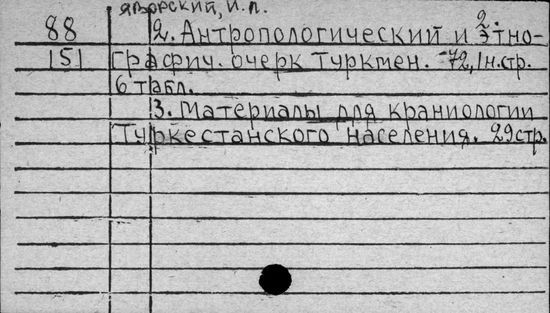 Яворский, И.Л.
2.
88 2. Антропологический и этно-
151 графич. очерк туркмен. -72, 1н.стр.
6 табл.
3. Материалы для краниологии
Туркестанского населения. 29стр.